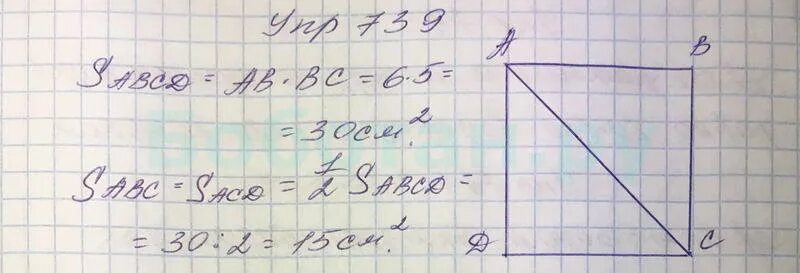 Упр 739
S ABCD = AB · BC = 6·5 =
= 30 см.²
S ABC = S ACD = 1/2 S ABCD =
= 30 : 2 = 15 см.²
A B
D C